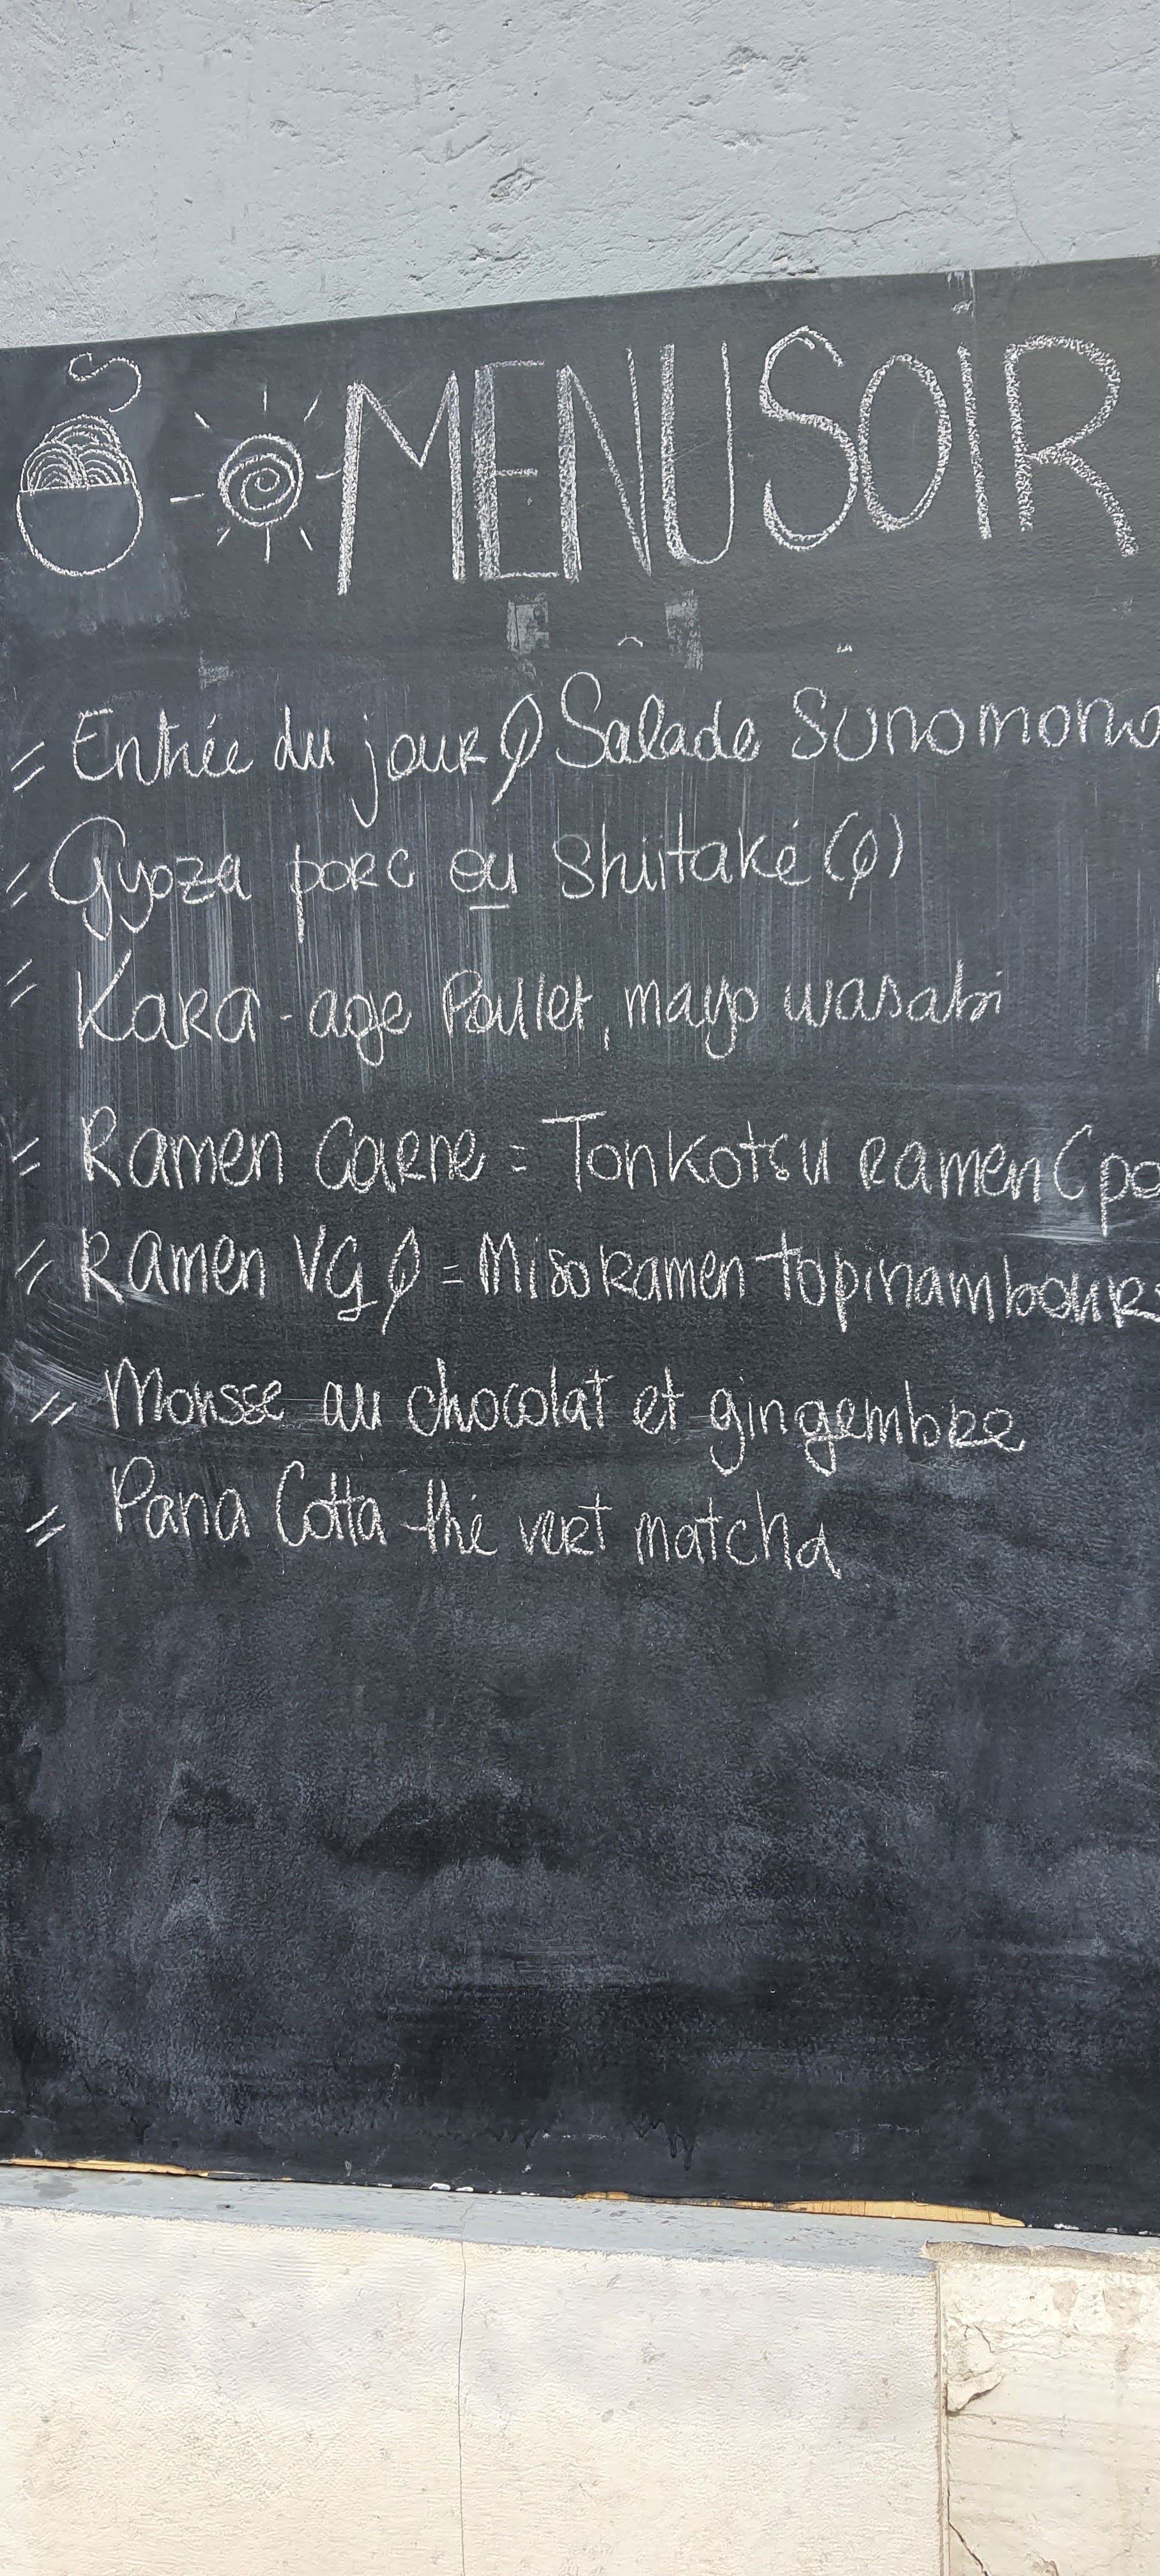 MENU SOIR
= Entrée du jour Salade Sunomono
= Gyoza porc ou Shiitaké ()
= Kara-age Poulet, mayo wasabi
= Ramen Carne = Tonkotsu ramen (po
= Ramen VG = Miso Ramen topinambours
= Mousse au chocolat et gingembre
= Pana Cotta thé vert matcha